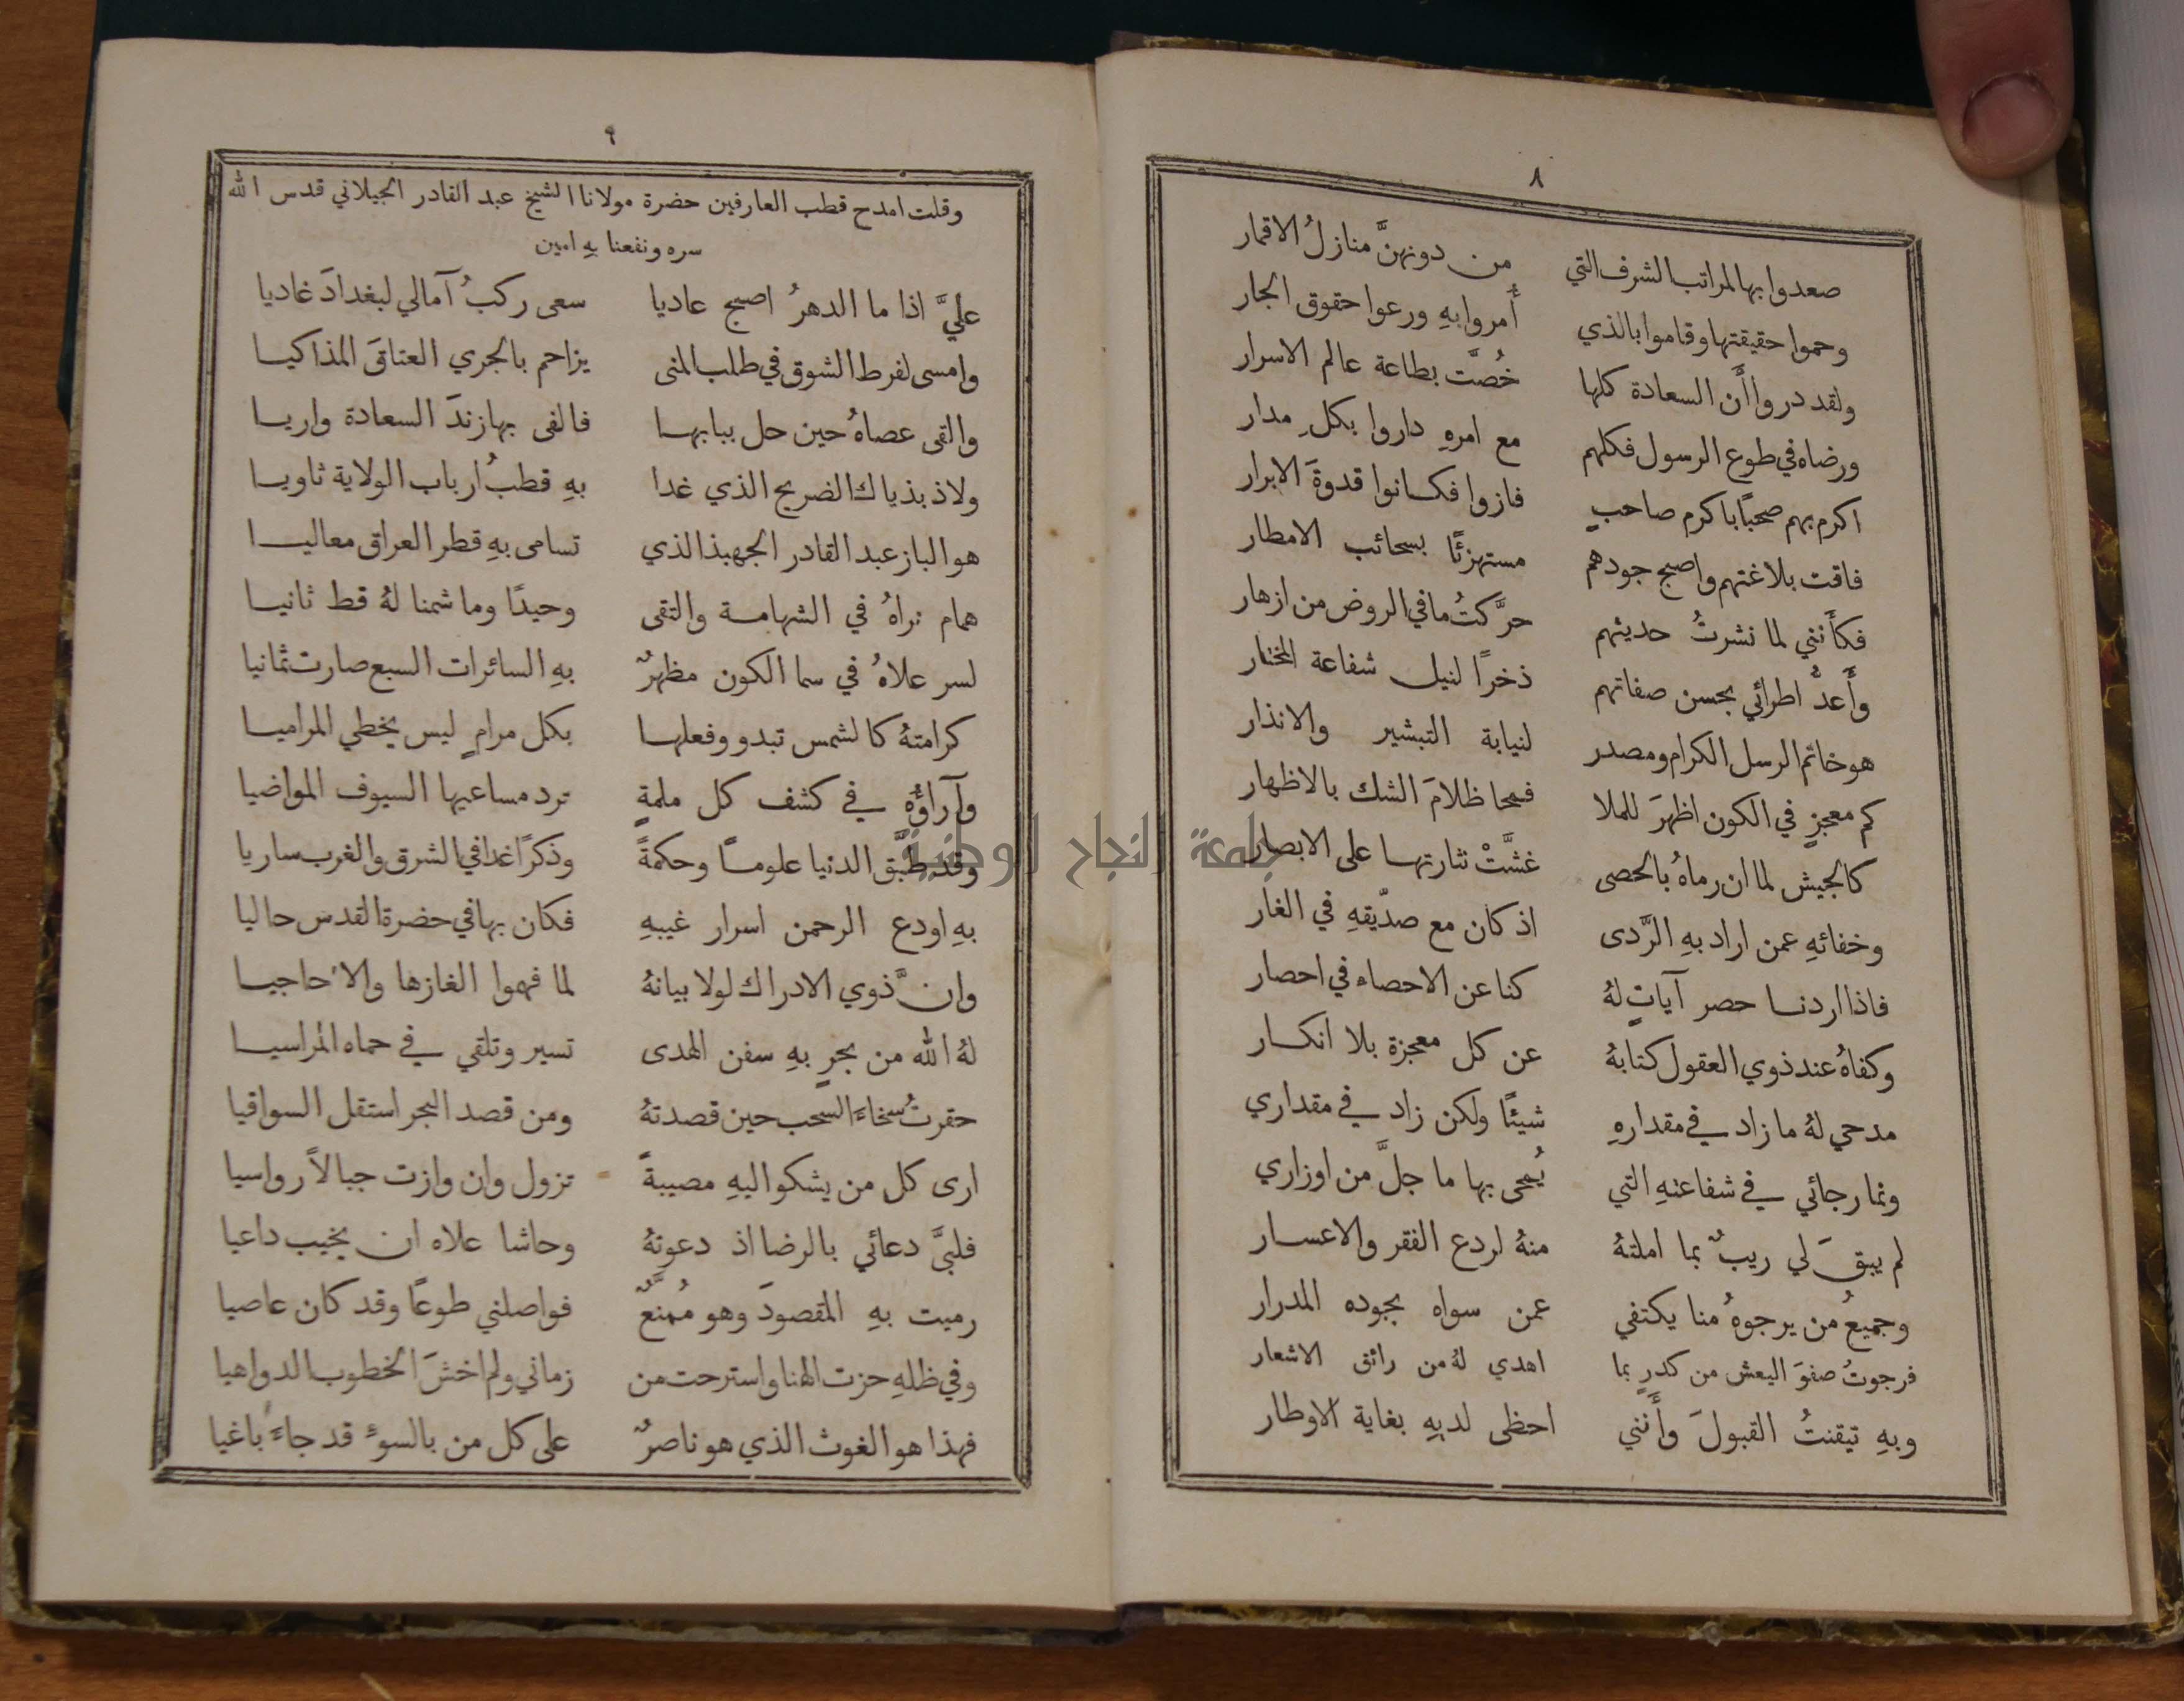 ٨
صعدوا بها المراتب الشرف التي من دونهنَّ منازلُ الاقمار
وحموا حقيقتها وقاموا بالذي أُمروا بهِ ورعوا حقوق الجار
ولقد دروا أَن السعادة كلها خُصَّت بطاعة عالم الاسرار
ورضاه في طوع الرسول فكلهم مع امرهِ داروا بكلِ مدار
اكرم بهم صحبًا باكرم صاحبٍ فازوا فكانوا قدوةَ الابرار
فاقت بلاغتهم واصبح جودهم مستهزئًا بسحائب الامطار
فكأَنني لما نشرتُ حديثهم حرَّكتُ ما في الروض من ازهار
وأَعدُّ اطرائي بحسن صفاتهم ذخرًا لنيل شفاعة المختار
هو خاتم الرسل الكرام ومصدر لنيابة التبشير والانذار
كم معجزٍ في الكون اظهرَ للملا فمحا ظلامَ الشك بالاظهار
كالجيش لما ان رماهُ بالحصى غشَّتْ نثارتها على الابصار
وخفائهِ عمن اراد بهِ الرَّدى اذ كان مع صدّيقهِ في الغار
فاذا اردنا حصر آياتٍ لهُ كنا عن الاحصاء في احصار
وكفاهُ عند ذوي العقول كتابهُ عن كل معجزة بلا انكار
مدحي لهُ ما زاد في مقدارهِ شيئًا ولكن زاد في مقداري
ونما رجائي في شفاعتهِ التي يُمحى بها ما جلَّ من اوزاري
لم يبقَ لي ريبٌ بما املتهُ منهُ لردع الفقر والاعسار
وجميعُ من يرجوهُ منا يكتفي عمن سواه بجوده المدرار
فرجوتُ صفوَ العيش من كدرٍ بما اهدي لهُ من رائق الاشعار
وبهِ تيقنتُ القبولَ وأَنني احظى لديهِ بغاية الاوطار
٩
وقلت امدح قطب العارفين حضرة مولانا الشيخ عبد القادر الجيلاني قدس الله
سره ونفعنا بهِ امين
عليَّ اذا ما الدهرُ اصبح عاديا سعى ركبُ آمالي لبغدادَ غاديا
وامسى لفرط الشوق في طلب المنى يزاحم بالجري العتاقَ المذاكيا
والقى عصاهُ حين حل ببابها فالفى بها زندَ السعادة واريا
ولاذ بذياك الضريح الذي غدا بهِ قطبُ ارباب الولاية ثاويا
هو الباز عبد القادر الجهبذ الذي تسامى بهِ قطر العراق معاليا
همام نراهُ في الشهامة والتقى وحيدًا وما شمنا لهُ قط ثانيا
لسر علاهُ في سما الكون مظهرٌ بهِ السائرات السبع صارت ثمانيا
كرامتهُ كالشمس تبدو وفعلها بكل مرامٍ ليس يخطي المراميا
وآراؤُه في كشف كل ملمةٍ ترد مساعيها السيوف المواضيا
وقد طبَّق الدنيا علومًا وحكمةً وذكرًا غدا في الشرق والغرب ساريا
بهِ اودع الرحمن اسرار غيبهِ فكان بها في حضرة القدس حاليا
وانَّ ذوي الادراك لولا بيانهُ لما فهموا الغازها والاحاجيا
لهُ الله من بحرٍ بهِ سفن الهدى تسير وتلقي في حماه المراسيا
حقرتُ سخاءَ السحب حين قصدتهُ ومن قصد البحر استقل السواقيا
ارى كل من يشكو اليهِ مصيبةً تزول وان وازت جبالاً رواسيا
فلبَّى دعائي بالرضا اذ دعوتهُ وحاشا علاه ان يخيب داعيا
رميت بهِ المقصودَ وهو مُمنَّعٌ فواصلني طوعًا وقد كان عاصيا
وفي ظلهِ حزت الهنا واسترحت من زماني ولم اخشَ الخطوب الدواهيا
فهذا هو الغوث الذي هو ناصرٌ على كل من بالسوءِ قد جاءَ باغيا
جامعة النجاح الوطنية